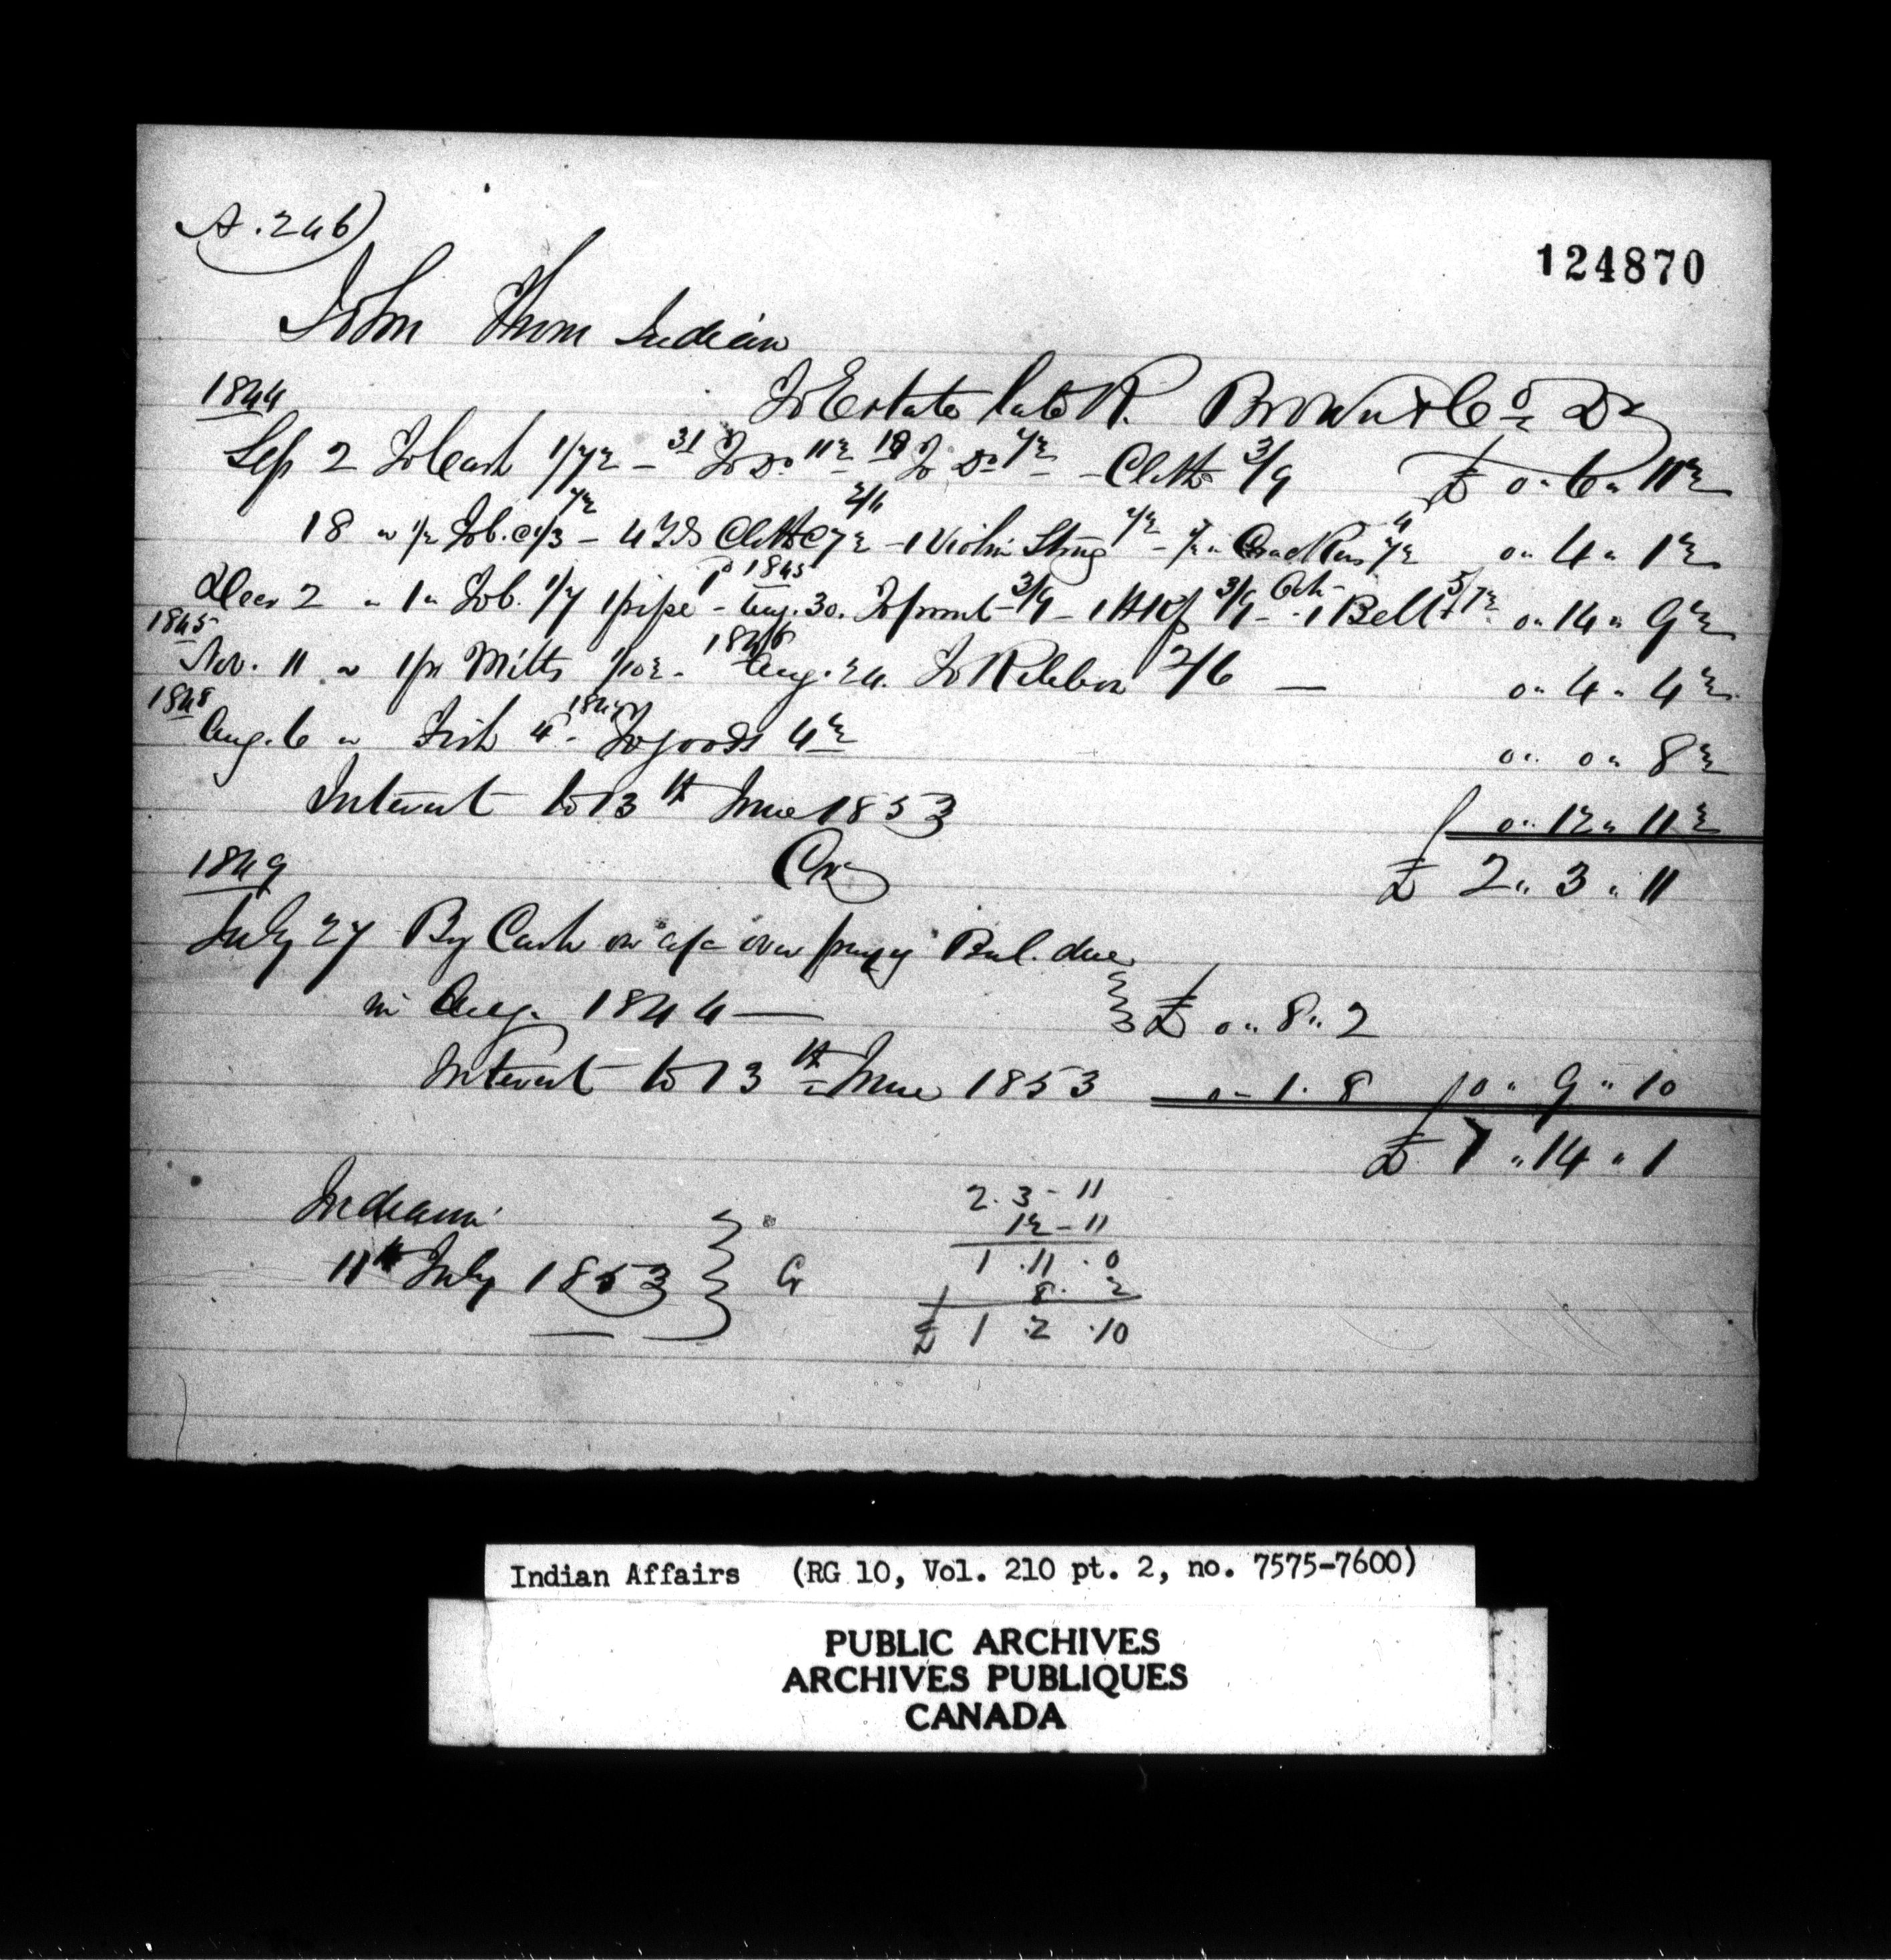 A. 246)
124870
John Thom Indian
1844 To Estate late R. Brown & Co Dr
Sep 2 To Cash 1/7½ - 31 To Do 11½ 18 To Do 7½ - Cloth 3/9 £ 0 " 6 " 11½
18 " ½ Tob. @ 1/3 7½ - 4 Yds Cloth @ 7½ 2/6 - 1 Violin String 7½ - ½ " Crackers 7½ 4 0 " 4 " 1½
Decr 2 " 1 " Tob. 1/7 1 pipe 1d - 1845 Aug. 30. To print 3/9 - 1 Hkf 3/9 - Oct - 1 Belt 5/7½ 0 " 14 " 9½
1845
Nov. 11 " 1 pr Mitts 1/10½ - 1846 Aug. 24. To Ribbon 2/6 — 0 " 4 " 4½
1848
Aug. 6 " Fish 4d - 1847 To goods 4½ 0 " 0 " 8½
Interest to 13th June 1853 0 " 12 " 11½
1849 Cr £ 2 " 3 " 11
July 27 By Cash on a/c over paying Bal. due
in Aug. 1844 — £ 0 " 8 " 2
Interest to 13th June 1853 0 - 1 . 8 0 " 9 " 10
£ 1 " 14 " 1
Indiana
11th July 1853
2 . 3 - 11
12 - 11
1 . 11 . 0
8 . 2
£ 1 . 2 . 10
Indian Affairs (RG 10, Vol. 210 pt. 2, no. 7575-7600)
PUBLIC ARCHIVES
ARCHIVES PUBLIQUES
CANADA